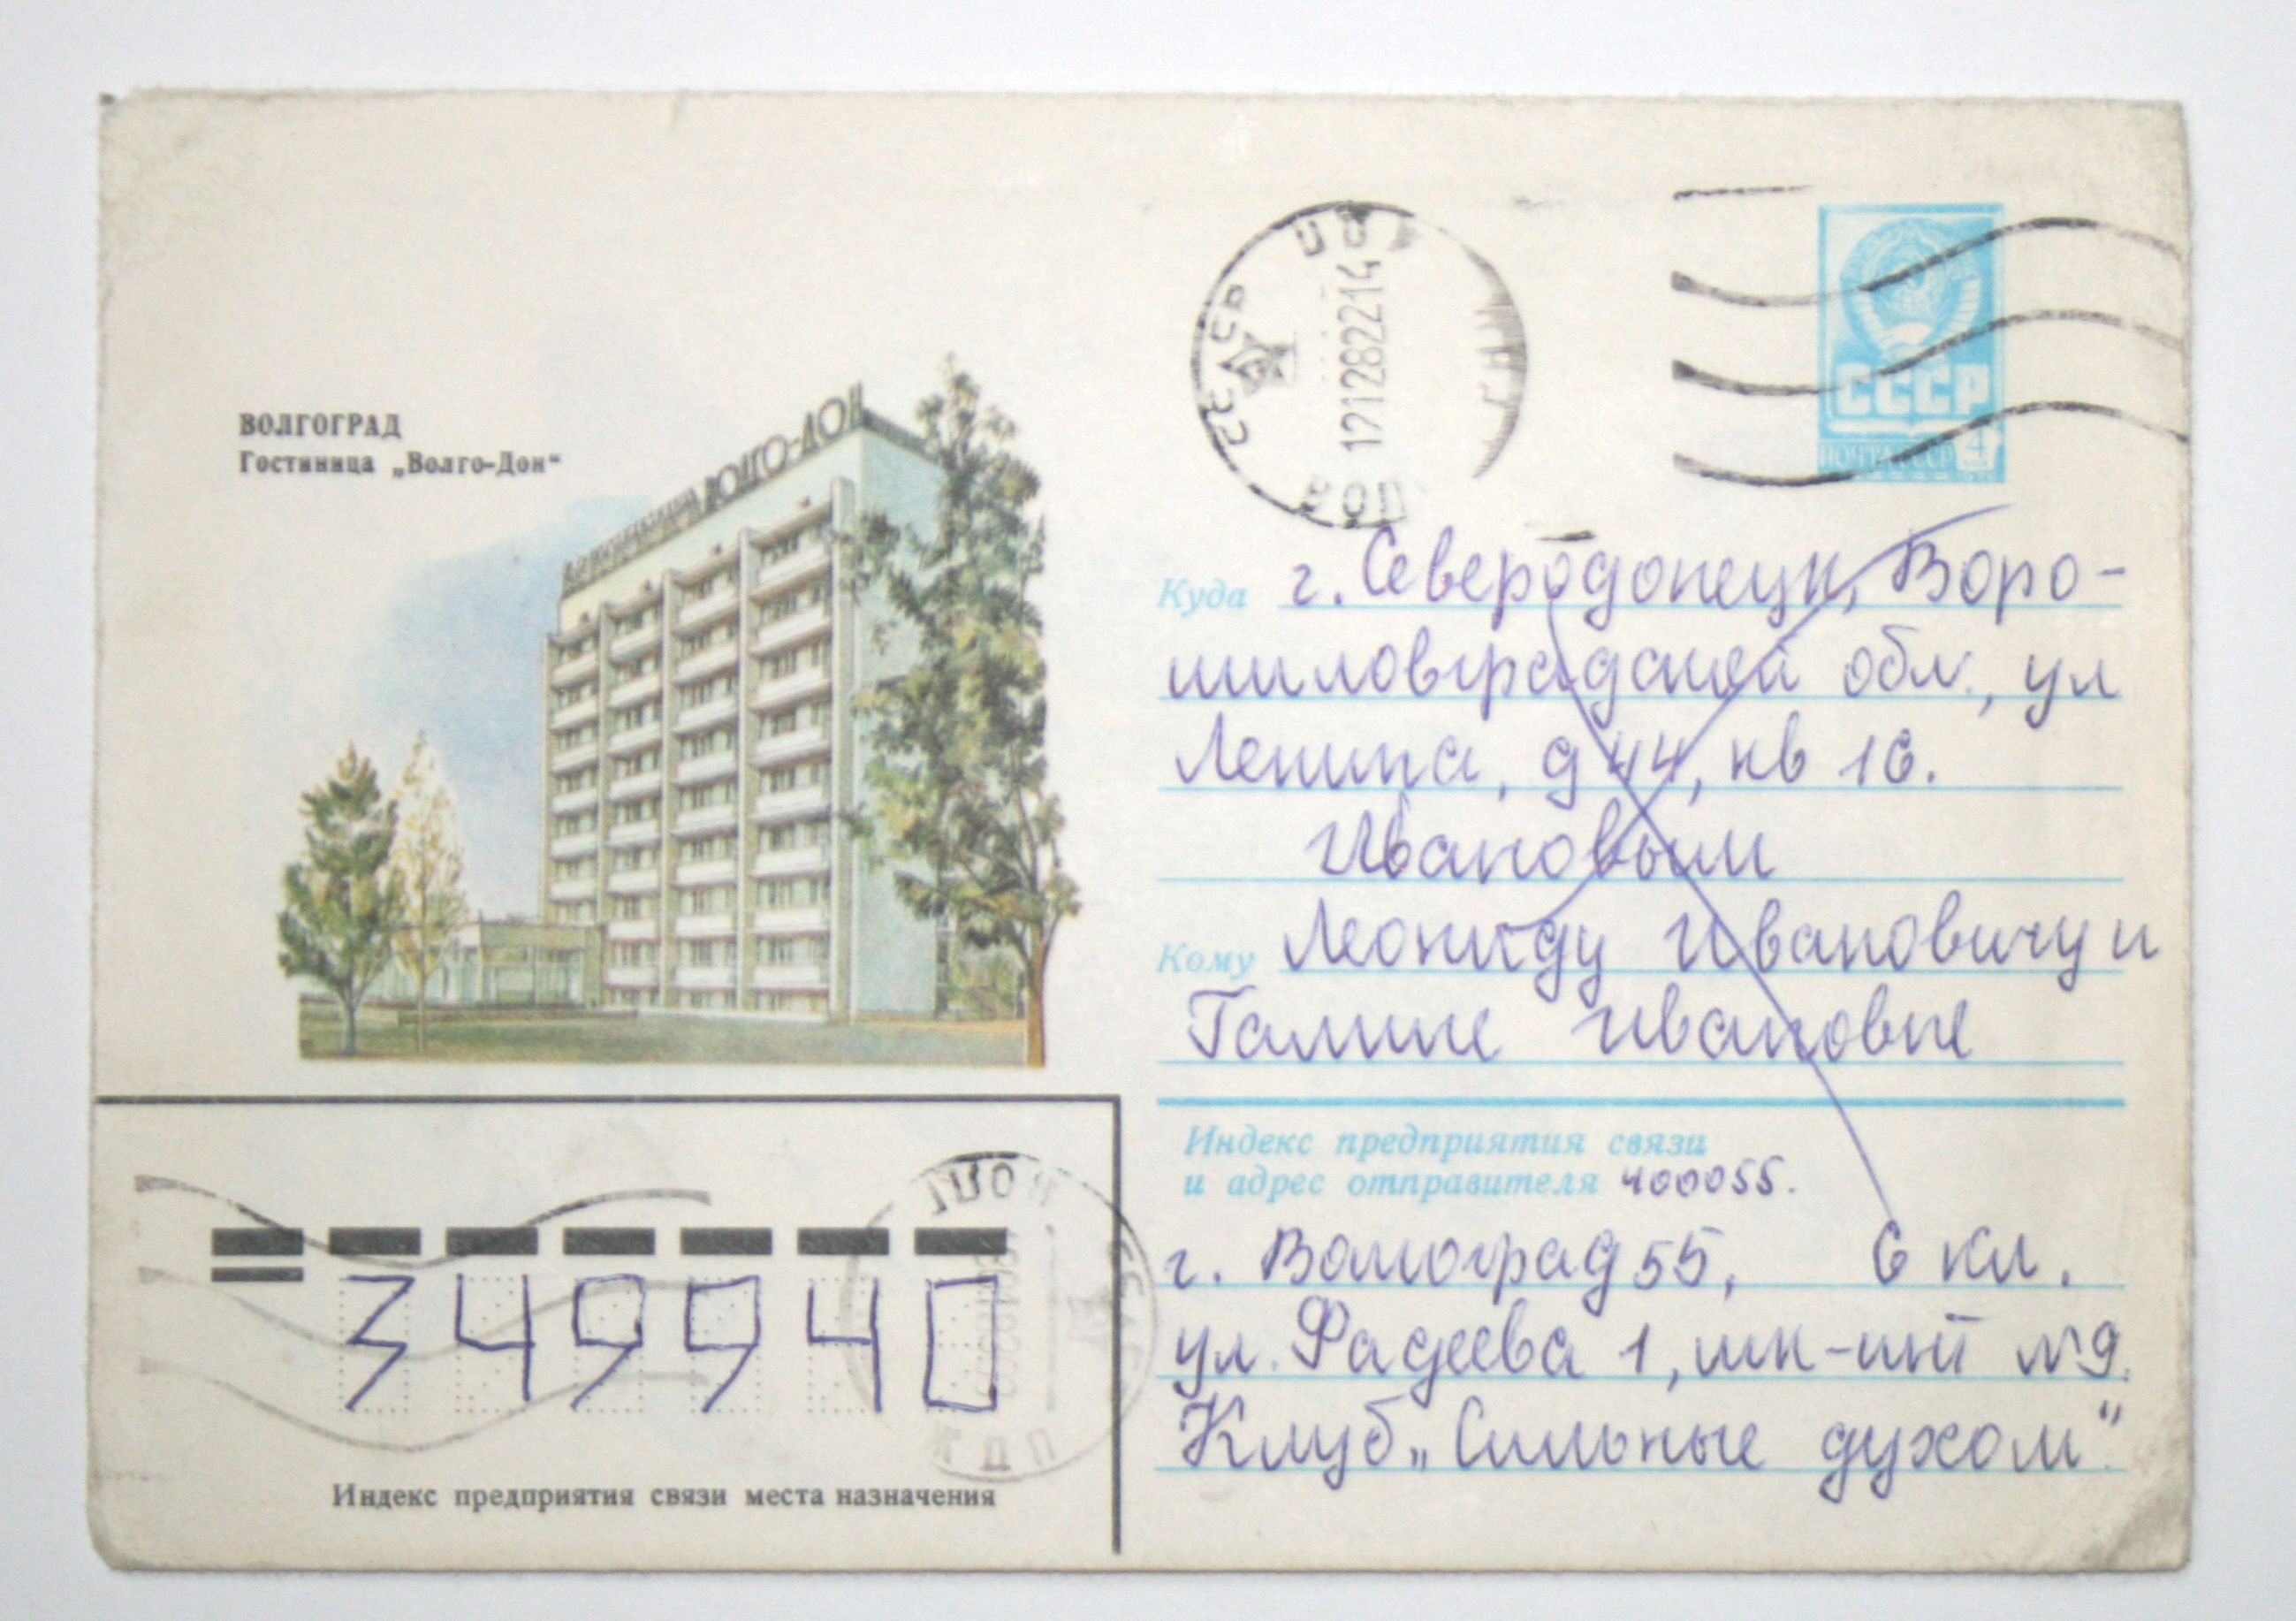 ВОЛГОГРАД
Гостиница „Волго-Дон"
ВОЛГО-ДОН
СССР
ПОЧТА СССР 4
1712822214
Куда г. Северодонецк, Воро-
шиловградской обл., ул
Ленина, д 44, кв 16.
Ивановым
Кому Леониду Ивановичу и
Галине Ивановне
Индекс предприятия связи
и адрес отправителя 400055.
г. Волгоград 55, 6 кл.
ул. Фадеева 1, шк-инт №9.
Клуб „Сильные духом"
349940
Индекс предприятия связи места назначения